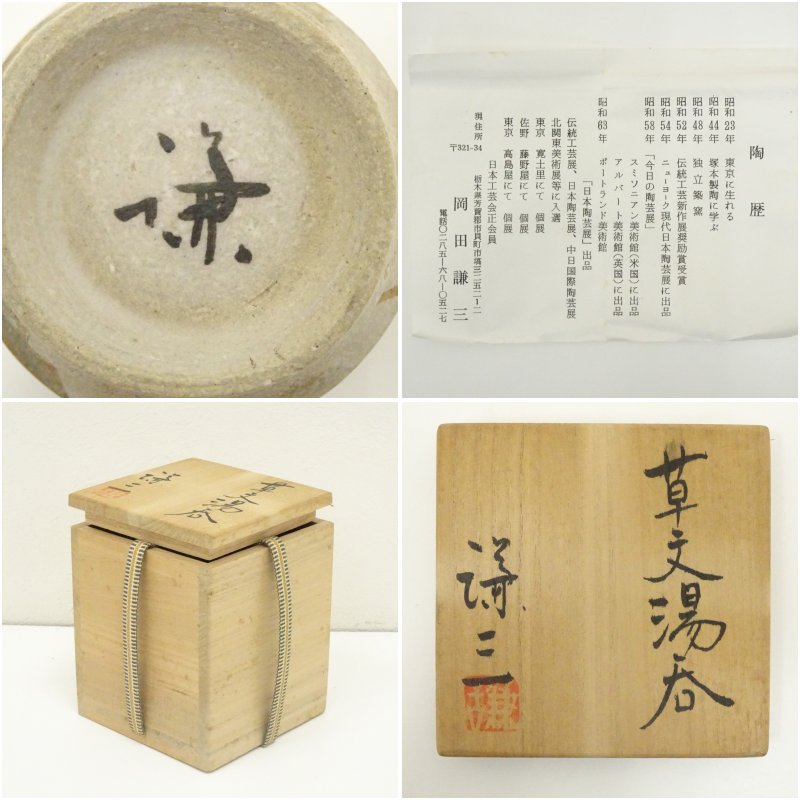 謙
陶歴
昭和23年 東京に生れる
昭和44年 塚本製陶に学ぶ
昭和48年 独立築窯
昭和52年 伝統工芸新作展奨励賞受賞
昭和54年 ニューヨーク現代日本陶芸展に出品
昭和58年 「今日の陶芸展」
スミソニアン美術館(米国)に出品
アルバート美術館(英国)に出品
昭和63年 ポートランド美術館
「日本陶芸展」出品
伝統工芸展、日本陶芸展、中日国際陶芸展
北関東美術展等に入選
東京 寛土里にて 個展
佐野 藤野屋にて 個展
東京 髙島屋にて 個展
日本工芸会正会員
岡田謙三
現住所
〒321-34
栃木県芳賀郡市貝町市塙三二五二ー二
電話〇二八五ー六八ー〇五二七
草文湯呑
謙三
草文湯呑
謙三
謙